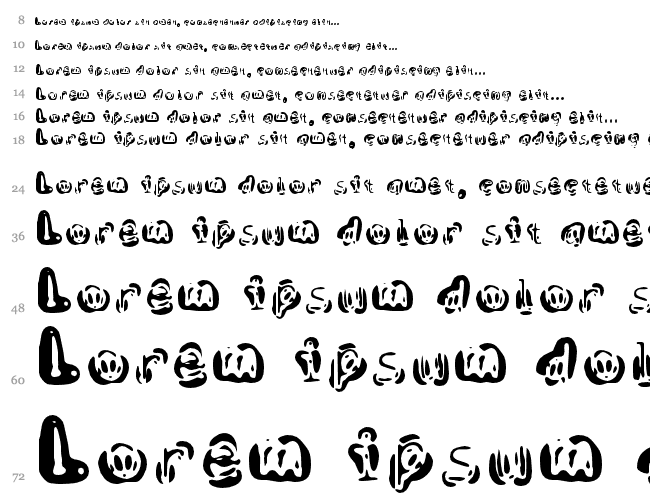 8 Lorem ipsum dolor sit amet, consectetuer adipiscing elit...
10 Lorem ipsum dolor sit amet, consectetuer adipiscing elit...
12 Lorem ipsum dolor sit amet, consectetuer adipiscing elit...
14 Lorem ipsum dolor sit amet, consectetuer adipiscing elit...
16 Lorem ipsum dolor sit amet, consectetuer adipiscing elit...
18 Lorem ipsum dolor sit amet, consectetuer adipiscing
24 Lorem ipsum dolor sit amet, consectetue
36 Lorem ipsum dolor sit ame
48 Lorem ipsum dolor s
60 Lorem ipsum do
72 Lorem ipsum d